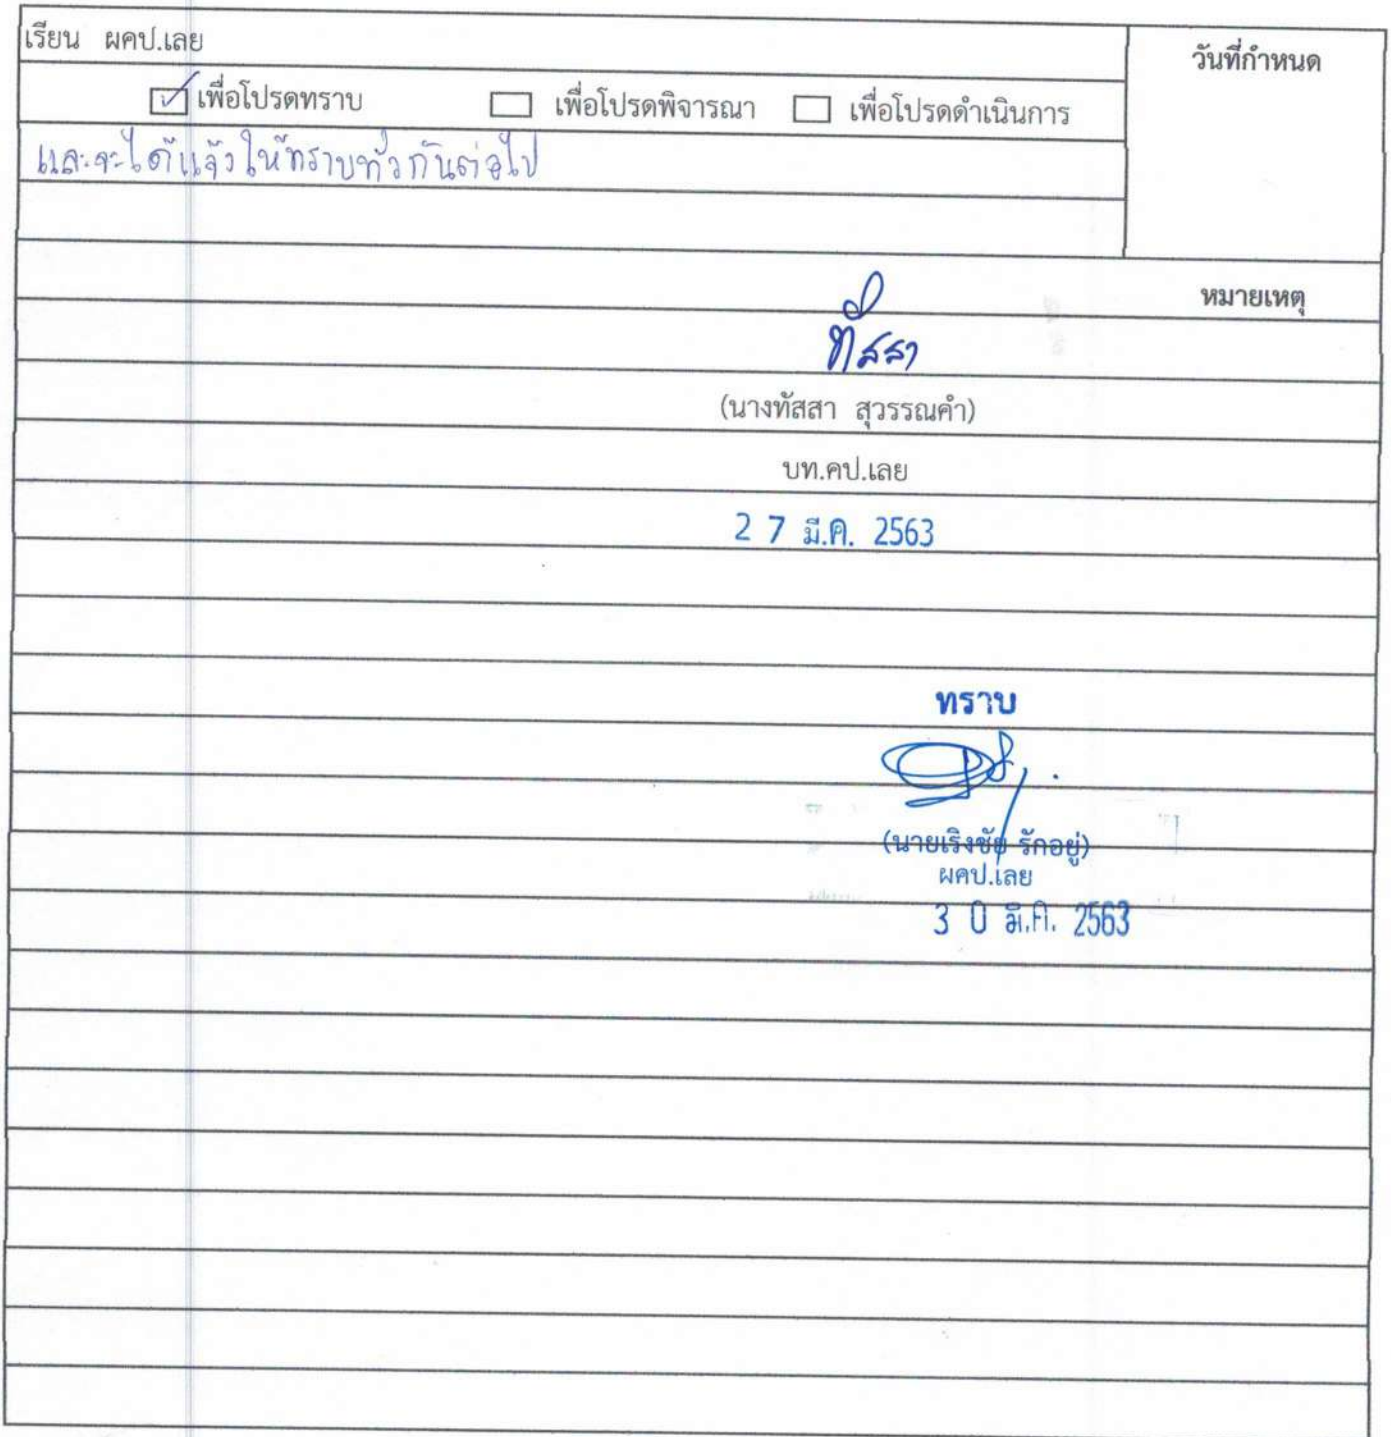 เรียน ผคป.เลย
วันที่กำหนด
เพื่อโปรดทราบ เพื่อโปรดพิจารณา เพื่อโปรดดำเนินการ
และจะได้แจ้งให้ทราบทั่วกันต่อไป
หมายเหตุ
ทัสสา
(นางทัสสา สุวรรณคำ)
บท.คป.เลย
2 7 มี.ค. 2563
ทราบ
(นายเริงชัย รักอยู่)
ผคป.เลย
3 0 มี.ค. 2563